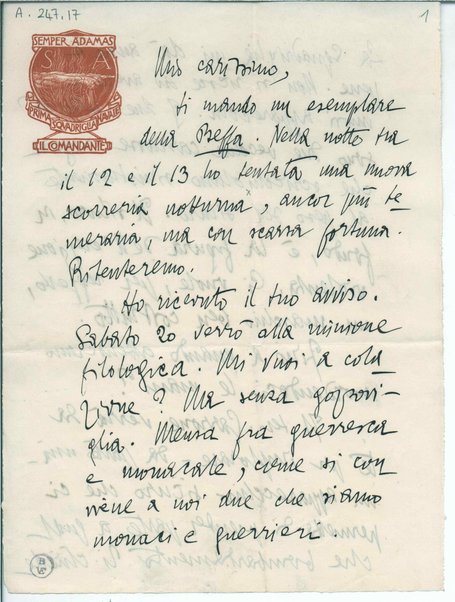 A. 247.17
1
SEMPER ADAMAS
S A
PRIMA SQUADRIGLIA NAVALE
IL COMANDANTE
Mio carissimo,
ti mando un esemplare
della Beffa. Nella notte tra
il 12 e il 13 ho tentata una nuova
scorreria notturna, ancor più te
meraria, ma con scarsa fortuna.
Ritenteremo.
Ho ricevuto il tuo avviso.
Sabato 20 verrò alla riunione
filologica. Mi vuoi a cola
zione? Ma senza gozzovi-
glia. Mensa fra guerresca
e monacale, come si con
viene a noi due che siamo
monaci e guerrieri.